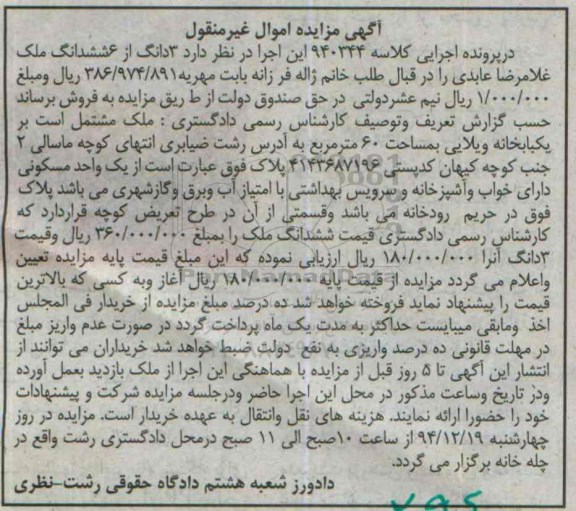 آگهی مزایده اموال غیرمنقول
درپرونده اجرایی کلاسه ۹۴۰۳۴۴ این اجرا در نظر دارد ۳دانگ از ۶ششدانگ ملک
غلامرضا عابدی را در قبال طلب خانم ژاله فر زانه بابت مهریه۳۸۶/۹۷۴/۸۹۱ ریال ومبلغ
۱/۰۰۰/۰۰۰ ریال نیم عشردولتی در حق صندوق دولت از ط ریق مزایده به فروش برساند
حسب گزارش تعریف وتوصیف کارشناس رسمی دادگستری : ملک مشتمل است بر
یکبابخانه ویلایی بمساحت ۶۰ مترمربع به آدرس رشت ضیابری انتهای کوچه ماسالی ۲
جنب کوچه کیهان کدپستی ۴۱۴۳۶۸۷۱۹۶ پلاک فوق عبارت است از یک واحد مسکونی
دارای خواب وآشپزخانه و سرویس بهداشتی با امتیاز آب وبرق وگازشهری می باشد پلاک
فوق در حریم رودخانه می باشد وقسمتی از آن در طرح تعریض کوچه قراردارد که
کارشناس رسمی دادگستری قیمت ششدانگ ملک را بمبلغ ۳۶۰/۰۰۰/۰۰۰ ریال وقیمت
۳دانگ آنرا ۱۸۰/۰۰۰/۰۰۰ ریال ارزیابی نموده که این مبلغ قیمت پایه مزایده تعیین
واعلام می گردد مزایده از قیمت پایه ۱۸۰/۰۰۰/۰۰۰ ریال آغاز وبه کسی که بالاترین
قیمت را پیشنهاد نماید فروخته خواهد شد ده درصد مبلغ مزایده از خریدار فی المجلس
اخذ ومابقی میبایست حداکثر به مدت یک ماه پرداخت گردد در صورت عدم واریز مبلغ
در مهلت قانونی ده درصد واریزی به نفع دولت ضبط خواهد شد خریداران می توانند از
انتشار این آگهی تا ۵ روز قبل از مزایده با هماهنگی این اجرا از ملک بازدید بعمل آورده
ودز تاریخ وساعت مذکور در محل این اجرا حاضر ودرجلسه مزایده شرکت و پیشنهادات
خود را حضورا ارائه نمایند. هزینه های نقل وانتقال به عهده خریدار است. مزایده در روز
چهارشنبه ۹۴/۱۲/۱۹ از ساعت ۱۰صبح الی ۱۱ صبح درمحل دادگستری رشت واقع در
چله خانه برگزار می گردد.
دادورز شعبه هشتم دادگاه حقوقی رشت-نظری